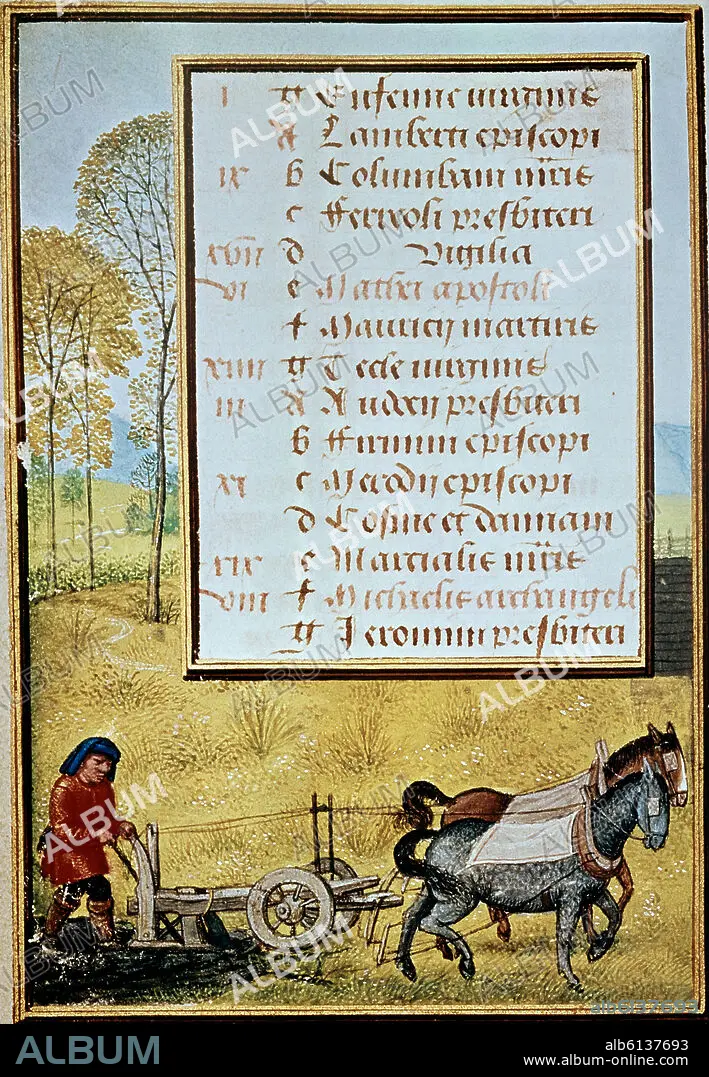 i g Eufemie virginis
A Lamberti episcopi
ix b Columbani m̄ris
c Ferreoli presbiteri
xvii d Vigilia
vi e Mathei apostoli
f Mauricij martiris
xiiii g Tecle virginis
iii A Audoeij presbiteri
b Firmini episcopi
xi c Meredij episcopi
d Cosme et damiani
xix e Marcialis m̄ris
viii f Michaelis archangeli
g Jeronimi presbiteri
ALBUM
alb6137693
www.album-online.com